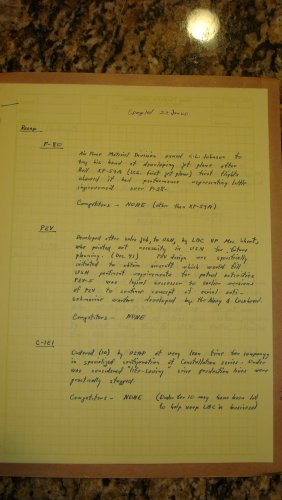 Compiled
Recap
P-80
Air Force Material Division asked C.L. Johnson to
try his hand at developing jet plane after
Bell XP-59A (U.S. first jet plane) first flights
showed it had performance representing little
improvement over P-38.
Competitors - NONE (other than XP-59A)
P2V
Developed after sales job, to USN, by LAC VP Mac Short,
who pointed out necessity in USN for future
planning. (Dec 41) P2V design was specifically
initiated to obtain aircraft which would fill
USN pertinent requirements for patrol activities
P2V-5 was logical successor to earlier versions
of P2V to continue concept of aerial anti-
submarine warfare developed by the Navy & Lockheed.
Competitors - NONE
C-121
Ordered (10) by USAF at very lean time for company
in specialized configuration of Constellation series. Order
was considered "life-saving" since production lines were
practically stopped.
Competitors - NONE (Order for 10 may have been let
to help keep LAC in business)